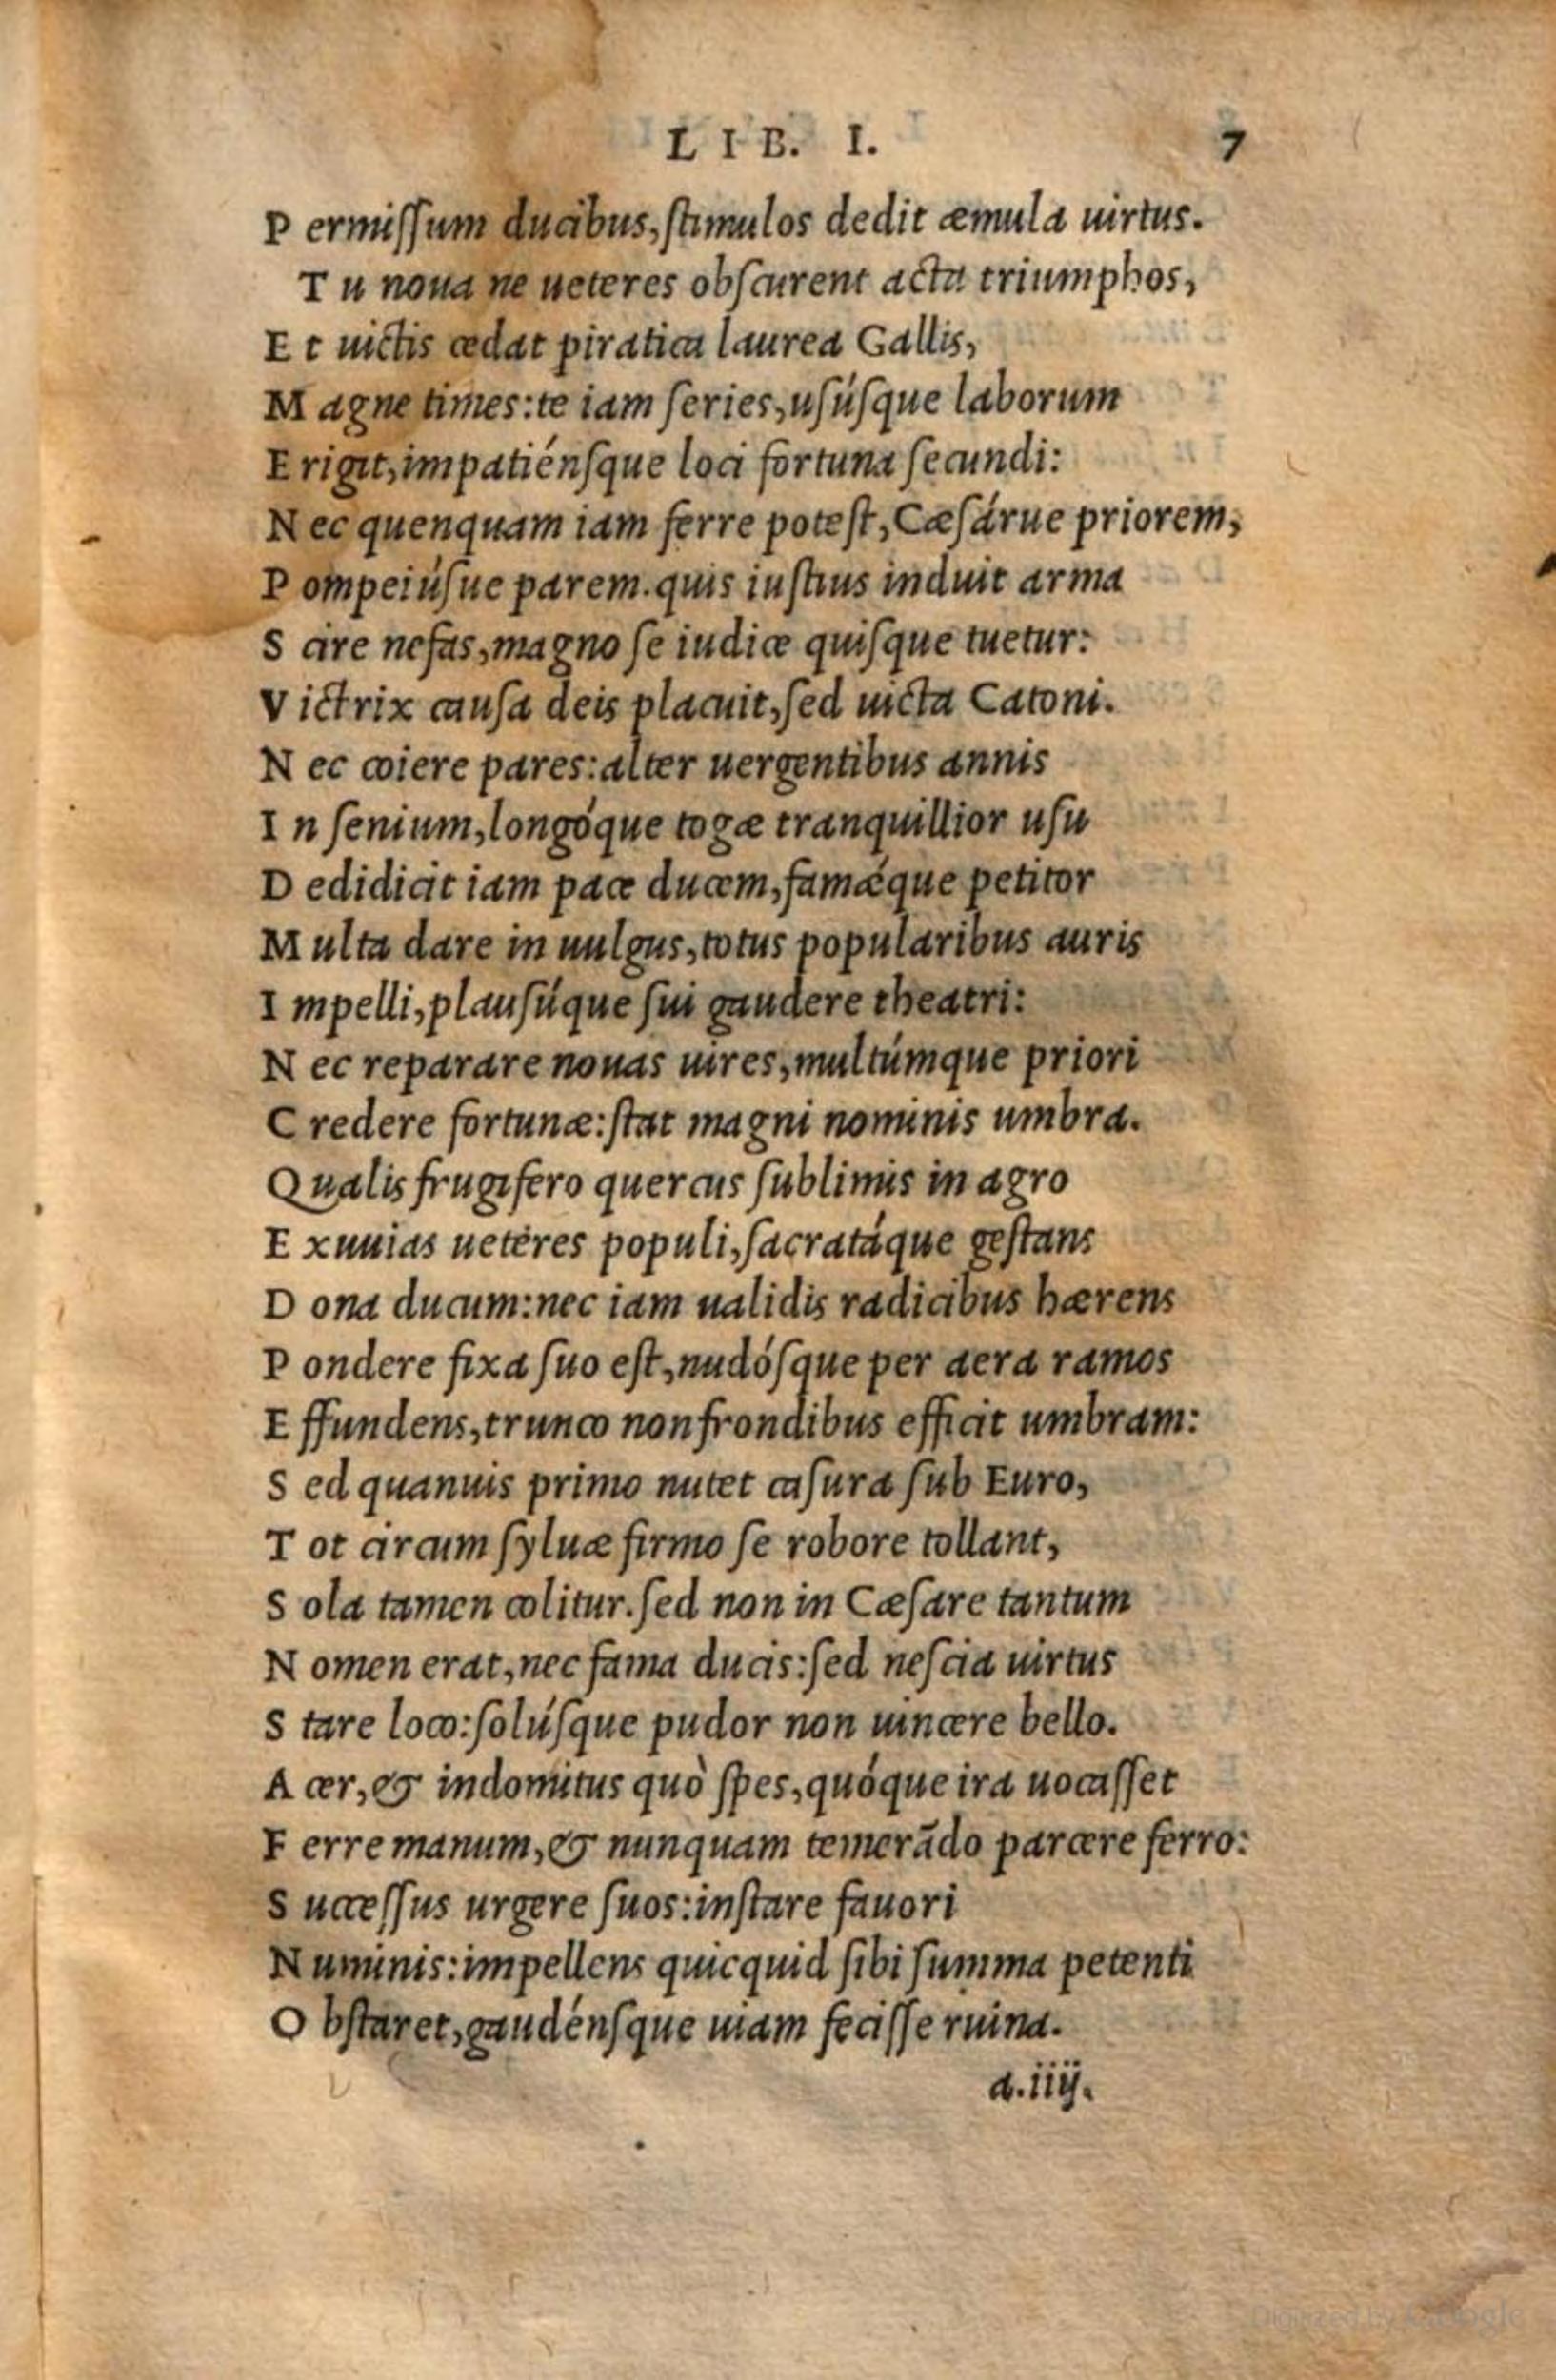 LIB. I. 7
P ermiſſum ducibus, ſtimulos dedit æmula uirtus.
T u noua ne ueteres obſcurent acta triumphos,
E t uictis cedat piratica laurea Gallis,
M agne times: te iam ſeries, uſúſque laborum
E rigit, impatiénſque loci fortuna ſecundi:
N ec quenquam iam ferre poteſt, Cæſárue priorem,
P ompeiúſue parem. quis iuſtius induit arma
S cire nefas, magno ſe iudice quiſque tuetur:
V ictrix cauſa deis placuit, ſed uicta Catoni.
N ec coiere pares: alter uergentibus annis
I n ſenium, longóque togæ tranquillior uſu
D edidicit iam pace ducem, famǽque petitor
M ulta dare in uulgus, totus popularibus auris
I mpelli, plauſúque ſui gaudere theatri:
N ec reparare nouas uires, multúmque priori
C redere fortunæ: ſtat magni nominis umbra.
Q ualis frugifero quercus ſublimis in agro
E xuuias ueteres populi, ſacratáque geſtans
D ona ducum: nec iam ualidis radicibus hærens
P ondere fixa ſuo eſt, nudóſque per aera ramos
E ffundens, trunco non frondibus efficit umbram:
S ed quanuis primo nutet caſura ſub Euro,
T ot circum ſyluæ firmo ſe robore tollant,
S ola tamen colitur. ſed non in Cæſare tantum
N omen erat, nec fama ducis: ſed neſcia uirtus
S tare loco: ſolúſque pudor non uincere bello.
A cer, & indomitus quò ſpes, quóque ira uocaſſet
F erre manum, & nunquam temerãdo parcere ferro:
S ucceſſus urgere ſuos: inſtare fauori
N uminis: impellens quicquid ſibi ſumma petenti
O bſtaret, gaudénſque uiam feciſſe ruina.
a.iiij.
Digitized by Google